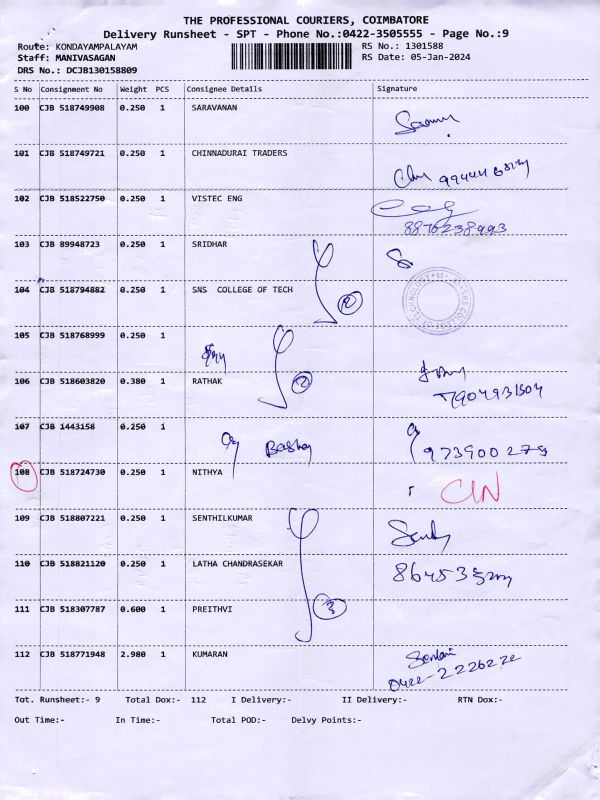 THE PROFESSIONAL COURIERS, COIMBATORE
Delivery Runsheet - SPT - Phone No.:0422-3505555 - Page No.:9
Route: KONDAYAMPALAYAM RS No.: 1301588
Staff: MANIVASAGAN RS Date: 05-Jan-2024
DRS No.: DCJB130158809
S No Consignment No Weight PCS Consignee Details Signature
100 CJB 518749908 0.250 1 SARAVANAN
101 CJB 518749721 0.250 1 CHINNADURAI TRADERS
102 CJB 518522750 0.250 1 VISTEC ENG
8870238993
103 CJB 89948723 0.250 1 SRIDHAR
104 CJB 518794882 0.250 1 SNS COLLEGE OF TECH
2
105 CJB 518768999 0.250 1
106 CJB 518603820 0.380 1 RATHAK
2
7904931504
107 CJB 1443158 0.250 1
973900279
108 CJB 518724730 0.250 1 NITHYA
CIN
109 CJB 518807221 0.250 1 SENTHILKUMAR
110 CJB 518821120 0.250 1 LATHA CHANDRASEKAR
111 CJB 518307787 0.600 1 PREITHVI
3
112 CJB 518771948 2.980 1 KUMARAN
0422-2226222
Tot. Runsheet:- 9 Total Dox:- 112 I Delivery:- II Delivery:- RTN Dox:-
Out Time:- In Time:- Total POD:- Delvy Points:-